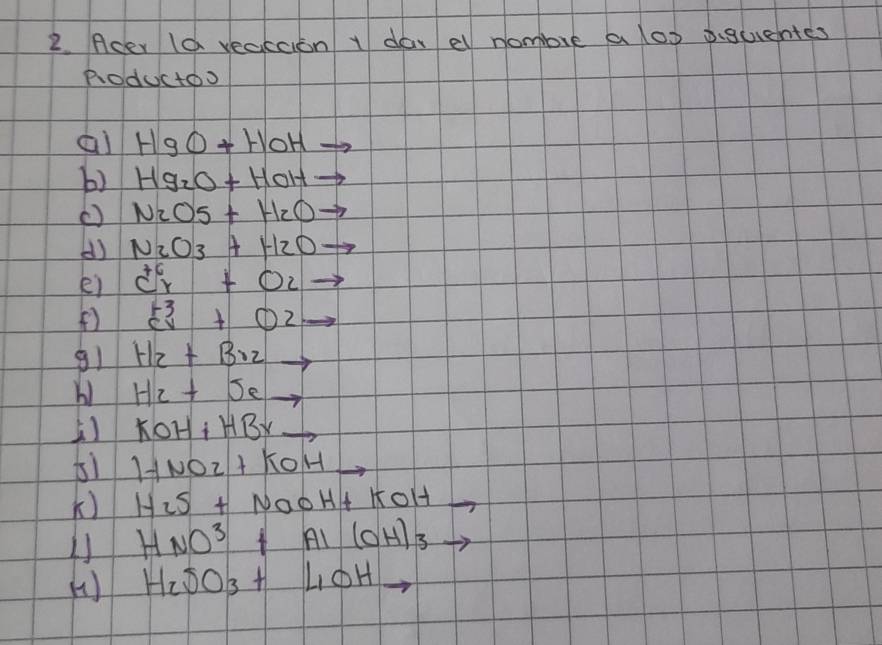 2. Acer la reacción y dar el nombre a los siguientes
Productos
a) HgO + HOH →
b) Hg2O + HOH →
c) N2O5 + H2O →
d) N2O3 + H2O →
e) Cr+6 + O2 →
f) Cr+3 + O2 →
g) H2 + Br2 →
h) H2 + Se →
i) KOH + HBr →
j) HNO2 + KOH →
k) H2S + NaOH + KOH →
l) HNO³ + Al(OH)3 →
M) H2SO3 + LiOH →